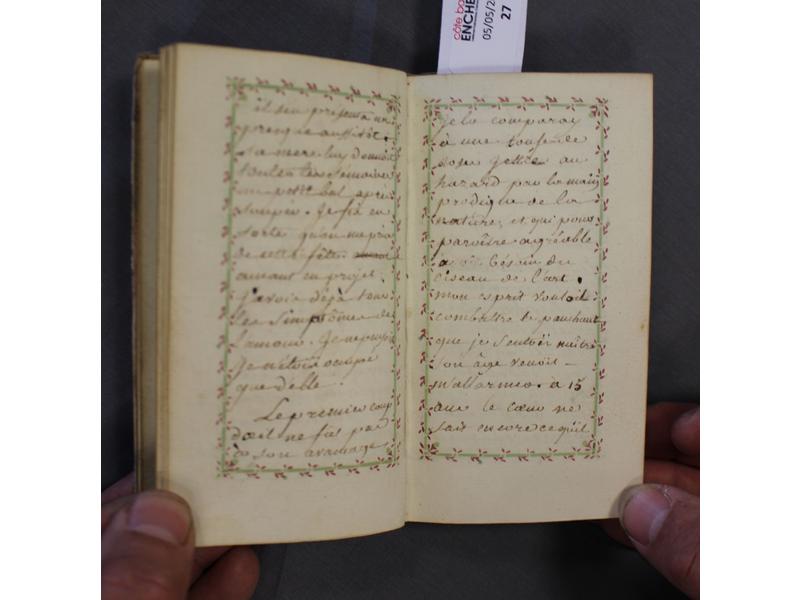 côte ba
ENCHE
05/05/2
27
il s'en présenta un
presque aussitôt.
Sa mere luy donnoit
toutes les semaines
un petit bal après
souper. Je fis en
sorte qu'on me pria
de cette fête
amant en projet.
J'avois déjà tous
les simptômes de
l'amour. Je
je n'étois occupé
que d'elle.
Le premier coup
d'œil ne fut pas
à son avantage,
je la comparay
à une touffe de
roses jettée au
hazard par la main
prodigue de la
nature, et qui pour
paroître agréable
a besoin du
ciseau de l'art.
mon esprit vouloit
combattre le panchant
que je sentois naître
son âge venoit
m'allarmer. a 15
ans le cœur ne
sait encore ce qu'il